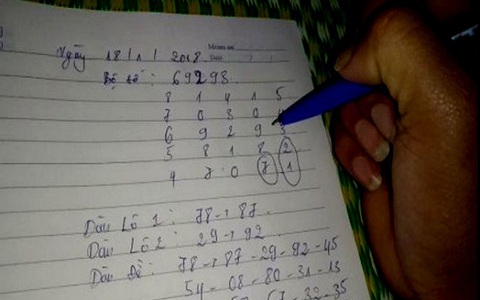 Ngày 18/1/2018
Bộ số: 69298
8 1 4 1 5
7 0 3 0 4
6 9 2 9 3
5 8 1 8 2
4 7 0 7 1
Dàn Lô 1: 78-87.
Dàn Lô 2: 29-92.
Dàn Đề: 78-87-29-92-45
54-08-80-31-13
67-32-35